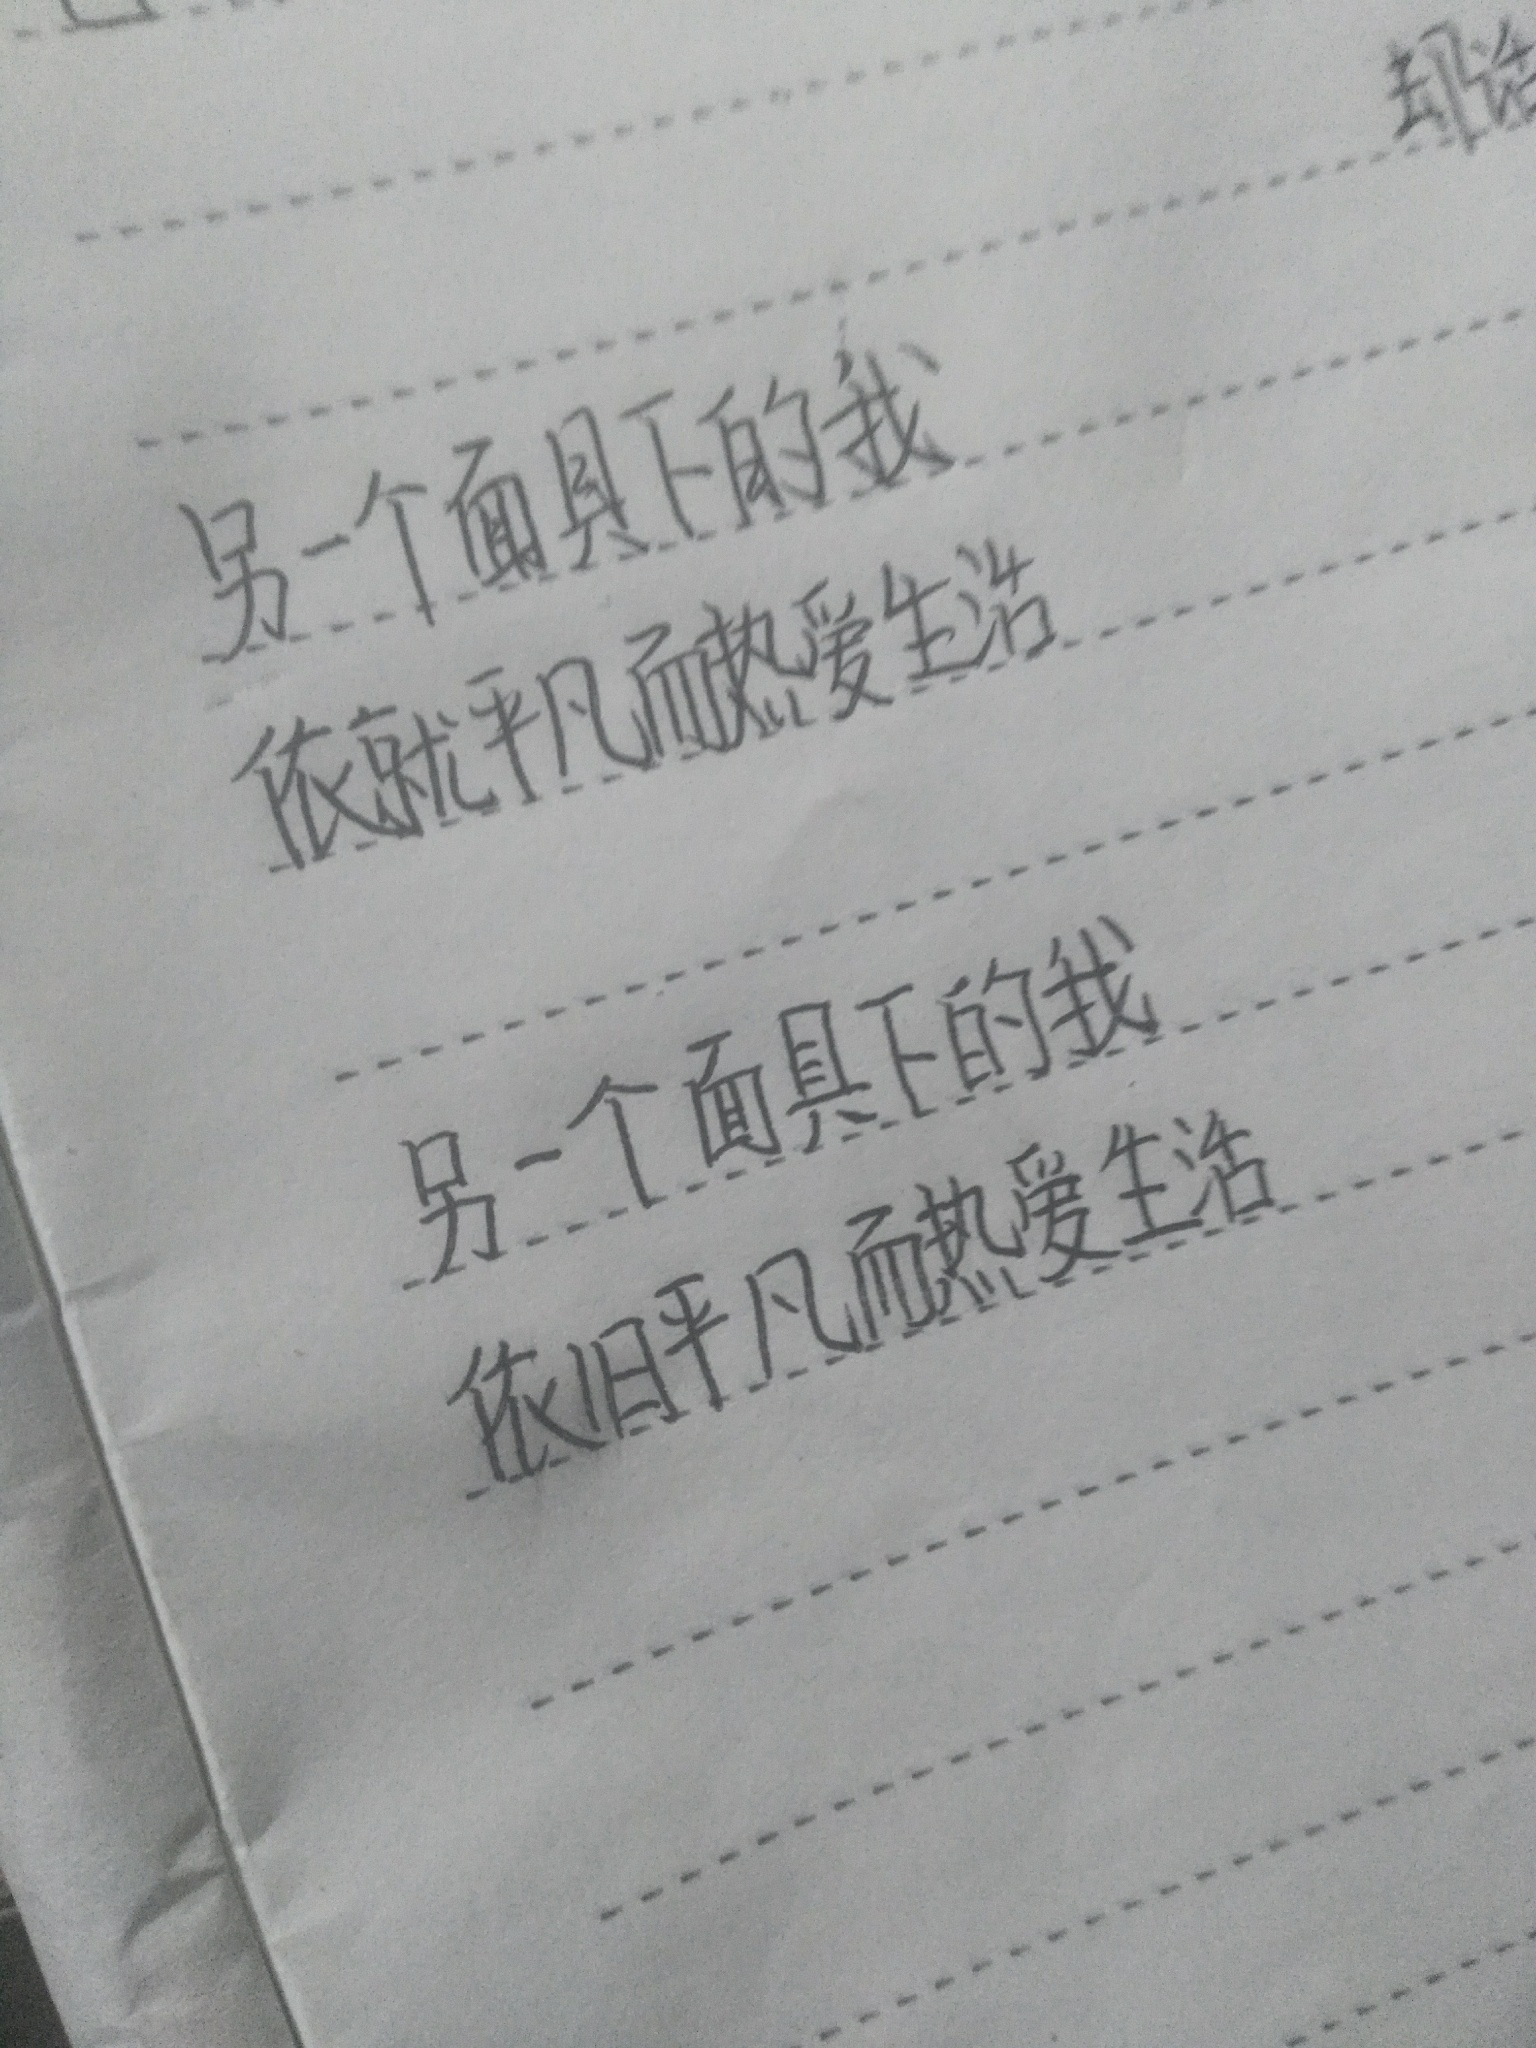 却话
另一个面具下的我
依就平凡而热爱生活
另一个面具下的我
依旧平凡而热爱生活